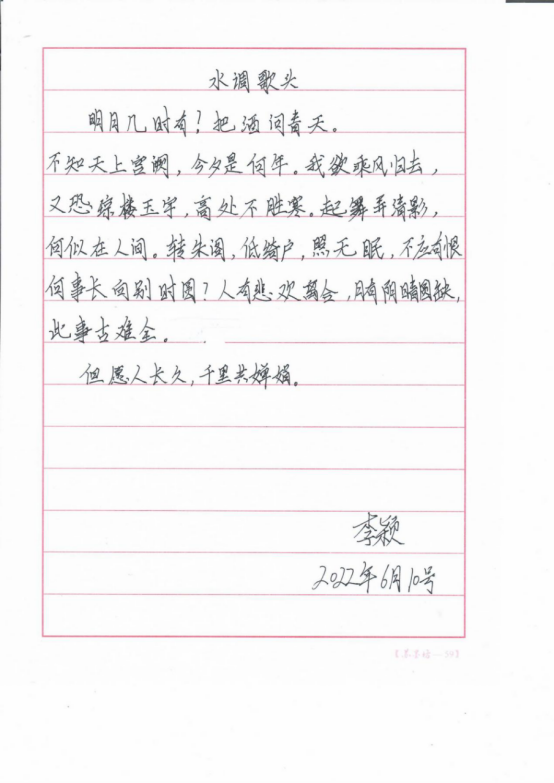 水调歌头
明月几时有?把酒问青天。
不知天上宫阙,今夕是何年。我欲乘风归去,
又恐琼楼玉宇,高处不胜寒。起舞弄清影,
何似在人间。转朱阁,低绮户,照无眠,不应有恨
何事长向别时圆?人有悲欢离合,月有阴晴圆缺,
此事古难全。
但愿人长久,千里共婵娟。
李颖
2022年6月10号